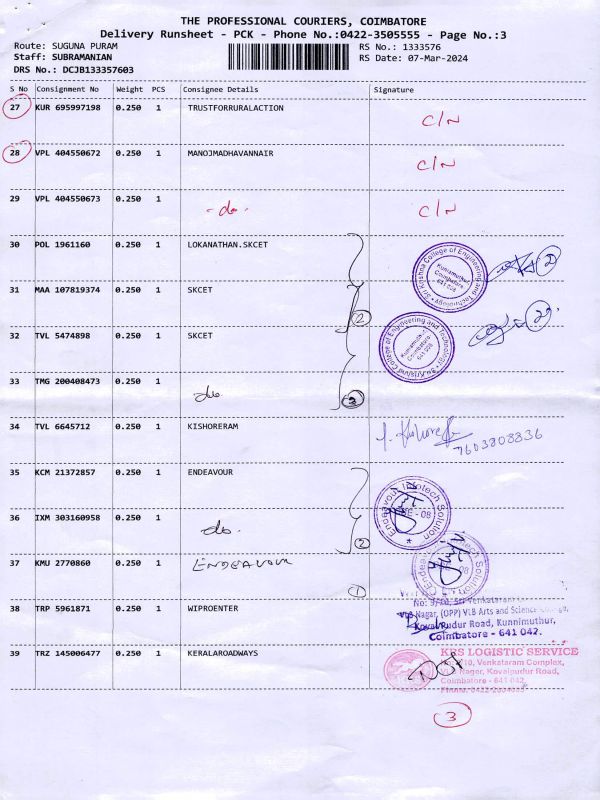 THE PROFESSIONAL COURIERS, COIMBATORE
Delivery Runsheet - PCK - Phone No.:0422-3505555 - Page No.:3
Route: SUGUNA PURAM RS No.: 1333576
Staff: SUBRAMANIAN RS Date: 07-Mar-2024
DRS No.: DCJB133357603
S No Consignment No Weight PCS Consignee Details Signature
27 KUR 695997198 0.250 1 TRUSTFORRURALACTION C/N
28 VPL 404550672 0.250 1 MANOJMADHAVANNAIR C/N
29 VPL 404550673 0.250 1 -do- C/N
30 POL 1961160 0.250 1 LOKANATHAN.SKCET
Sri Krishna College of Engineering and Technology
Kuniamuthur, Coimbatore 641 008
31 MAA 107819374 0.250 1 SKCET
2
32 TVL 5474898 0.250 1 SKCET
Sri Krishna College of Engineering and Technology
Kuniamuthur, Coimbatore 641 008
33 TMG 200408473 0.250 1 do
34 TVL 6645712 0.250 1 KISHORERAM
7603808836
35 KCM 21372857 0.250 1 ENDEAVOUR
Endeavour Infotech Solution
36 IXM 303160958 0.250 1 do.
2
37 KMU 2770860 0.250 1 ENDEAVOUR
1
38 TRP 5961871 0.250 1 WIPROENTER
VLB Nagar, (OPP) VLB Arts and Science College,
Kovaipudur Road, Kunnimuthur,
Coimbatore - 641 042.
39 TRZ 145006477 0.250 1 KERALAROADWAYS
KRS LOGISTIC SERVICE
Venkataram Complex,
VLB Nagar, Kovaipudur Road,
Coimbatore - 641 042
3